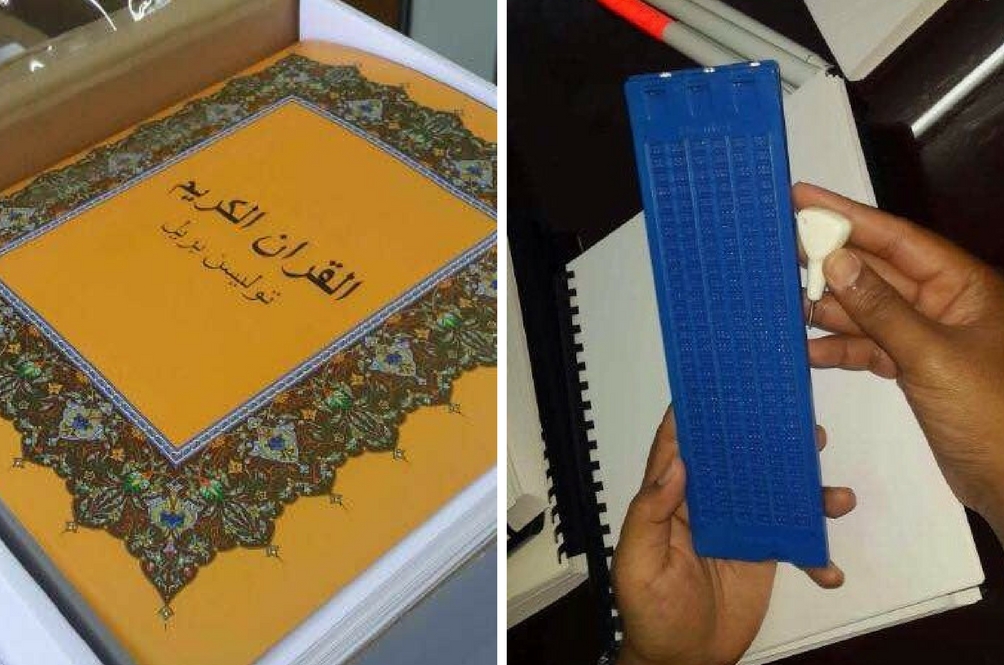 القران الكريم
توليسن بريل